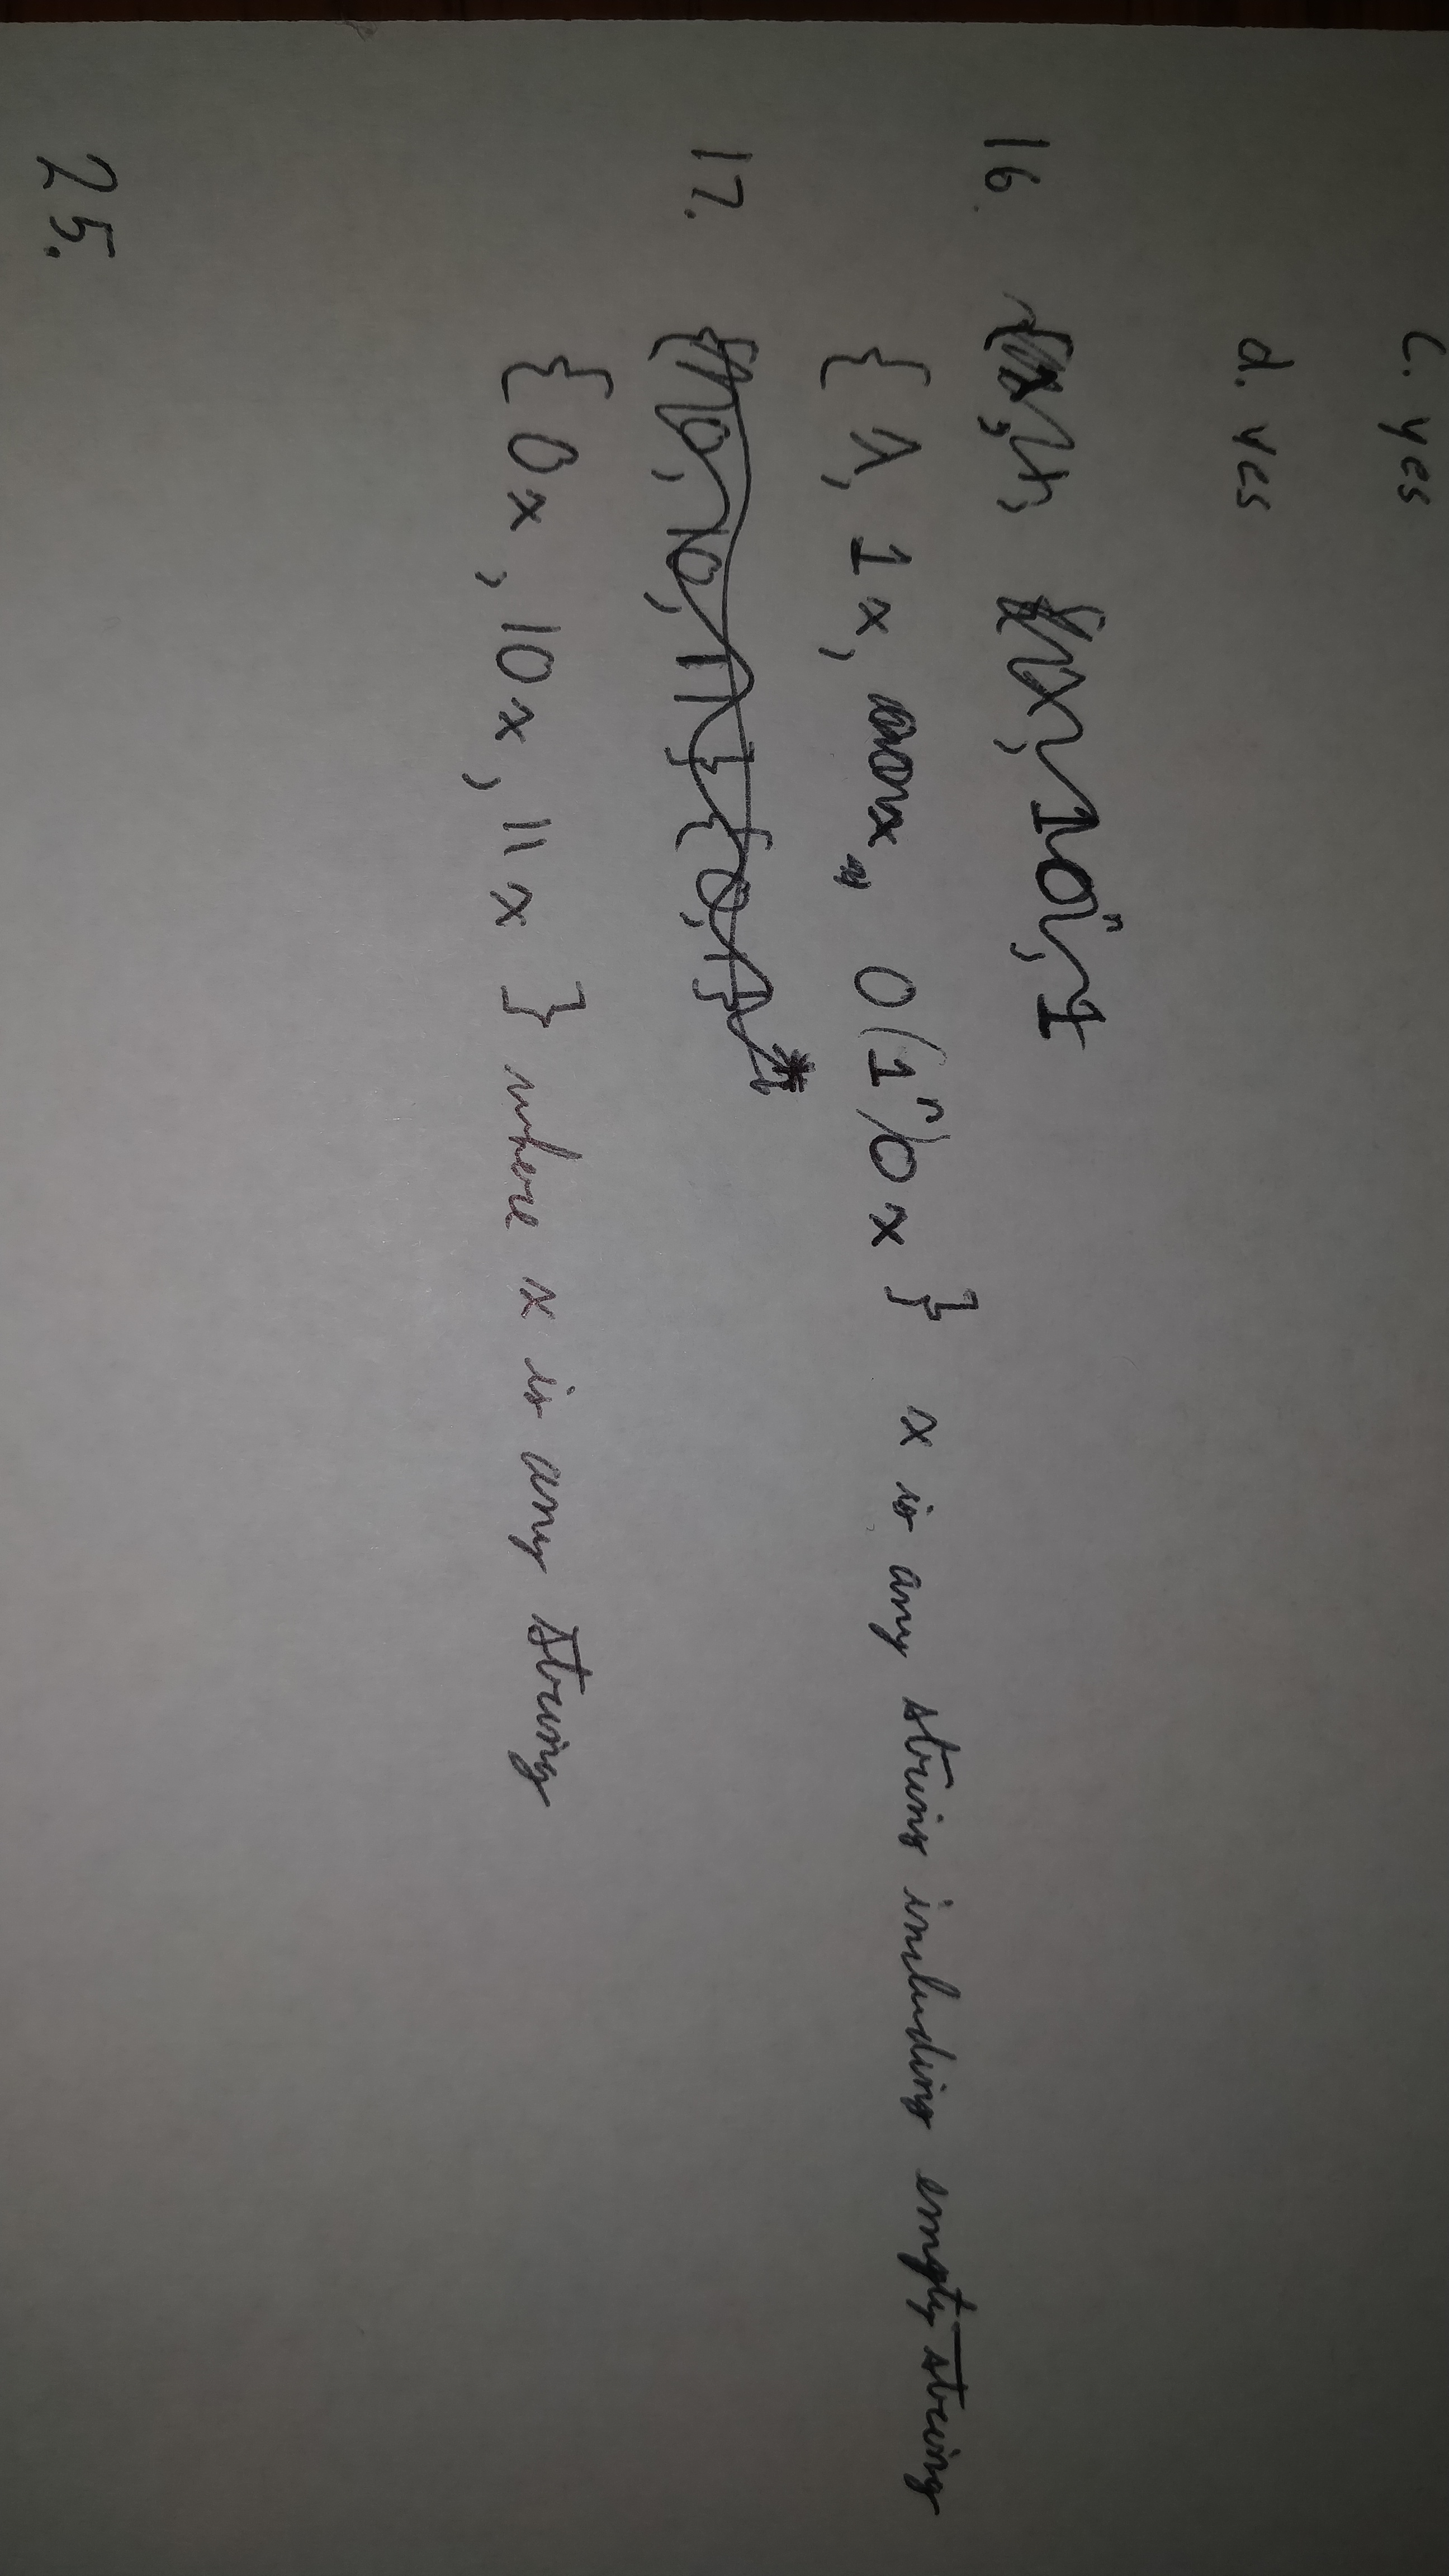 c. yes
d. yes
16.
{ λ, 1x, 0(1ⁿ)0x } x is any string including empty string
17. {0, 10, 11}{0, 1}*
{ 0x, 10x, 11x } where x is any string
25.